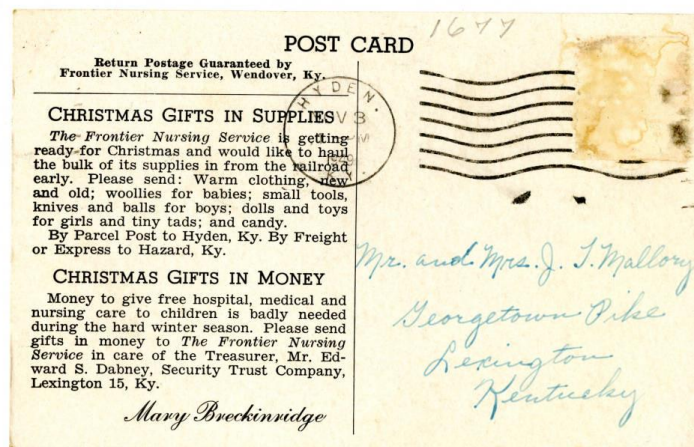 1677
POST CARD
Return Postage Guaranteed by
Frontier Nursing Service, Wendover, Ky.
CHRISTMAS GIFTS IN SUPPLIES
The Frontier Nursing Service is getting
ready for Christmas and would like to haul
the bulk of its supplies in from the railroad
early. Please send: Warm clothing, new
and old; woollies for babies; small tools,
knives and balls for boys; dolls and toys
for girls and tiny tads; and candy.
By Parcel Post to Hyden, Ky. By Freight
or Express to Hazard, Ky.
CHRISTMAS GIFTS IN MONEY
Money to give free hospital, medical and
nursing care to children is badly needed
during the hard winter season. Please send
gifts in money to The Frontier Nursing
Service in care of the Treasurer, Mr. Ed-
ward S. Dabney, Security Trust Company,
Lexington 15, Ky.
Mary Breckinridge
HYDEN.
V 3
Mr. and Mrs. J. T. Mallory
Georgetown Pike
Lexington
Kentucky